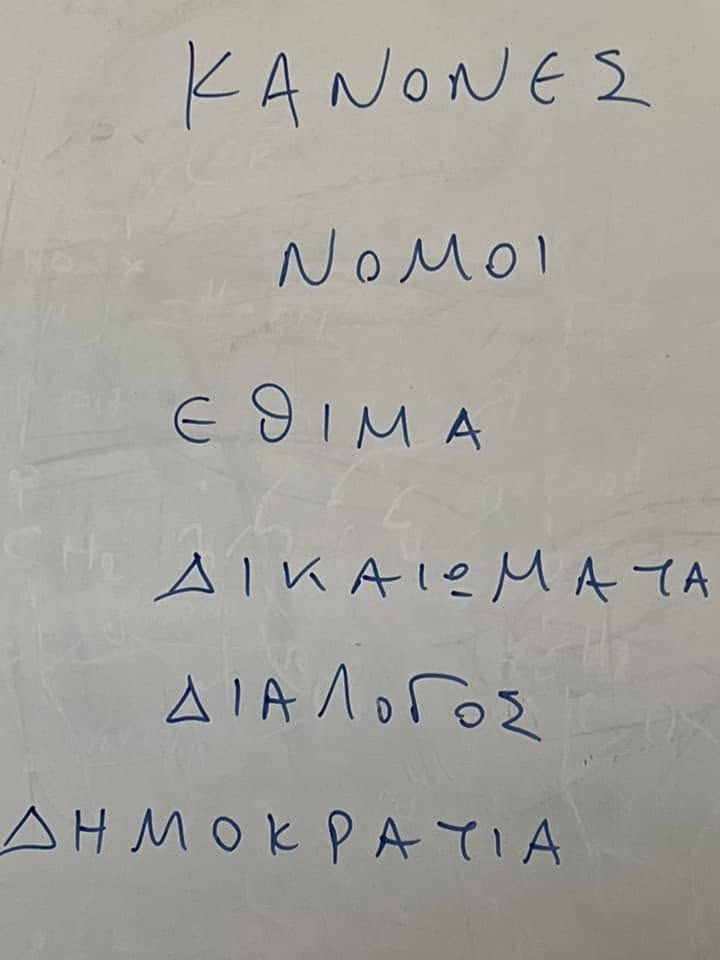 ΚΑΝΟΝΕΣ
ΝΟΜΟΙ
ΕΘΙΜΑ
ΔΙΚΑΙΩΜΑΤΑ
ΔΙΑΛΟΓΟΣ
ΔΗΜΟΚΡΑΤΙΑ